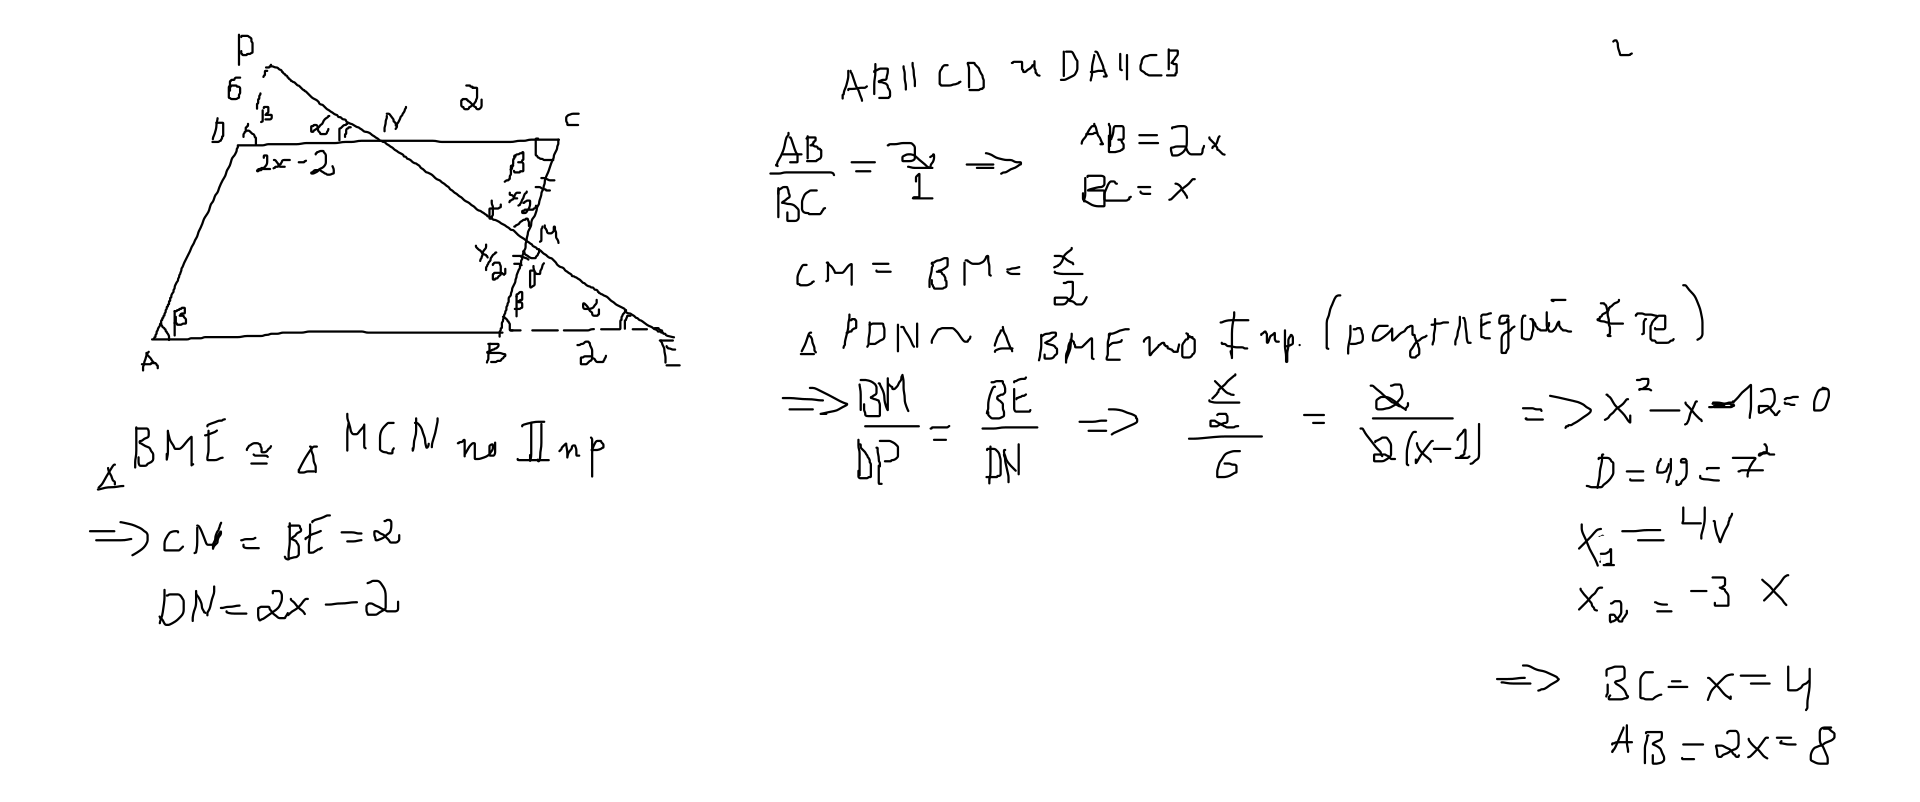 P
6
β
D
α
N
2
C
2x-2
β
x/2
α
M
x/2
α
β
α
β
A
B
2
E
AB || CD и DA || CB
AB/BC = 2/1 => AB = 2x
BC = x
CM = BM = x/2
△ PDN ~ △ BME по I пр. (разгледай ∢ те)
=> BM/DP = BE/DN => (x/2)/6 = 2/(2(x-1)) => x² - x - 12 = 0
D = 49 = 7²
x₁ = 4 v
x₂ = -3 X
=> BC = x = 4
AB = 2x = 8
△ BME ≅ △ MCN по II пр
=> CN = BE = 2
DN = 2x - 2